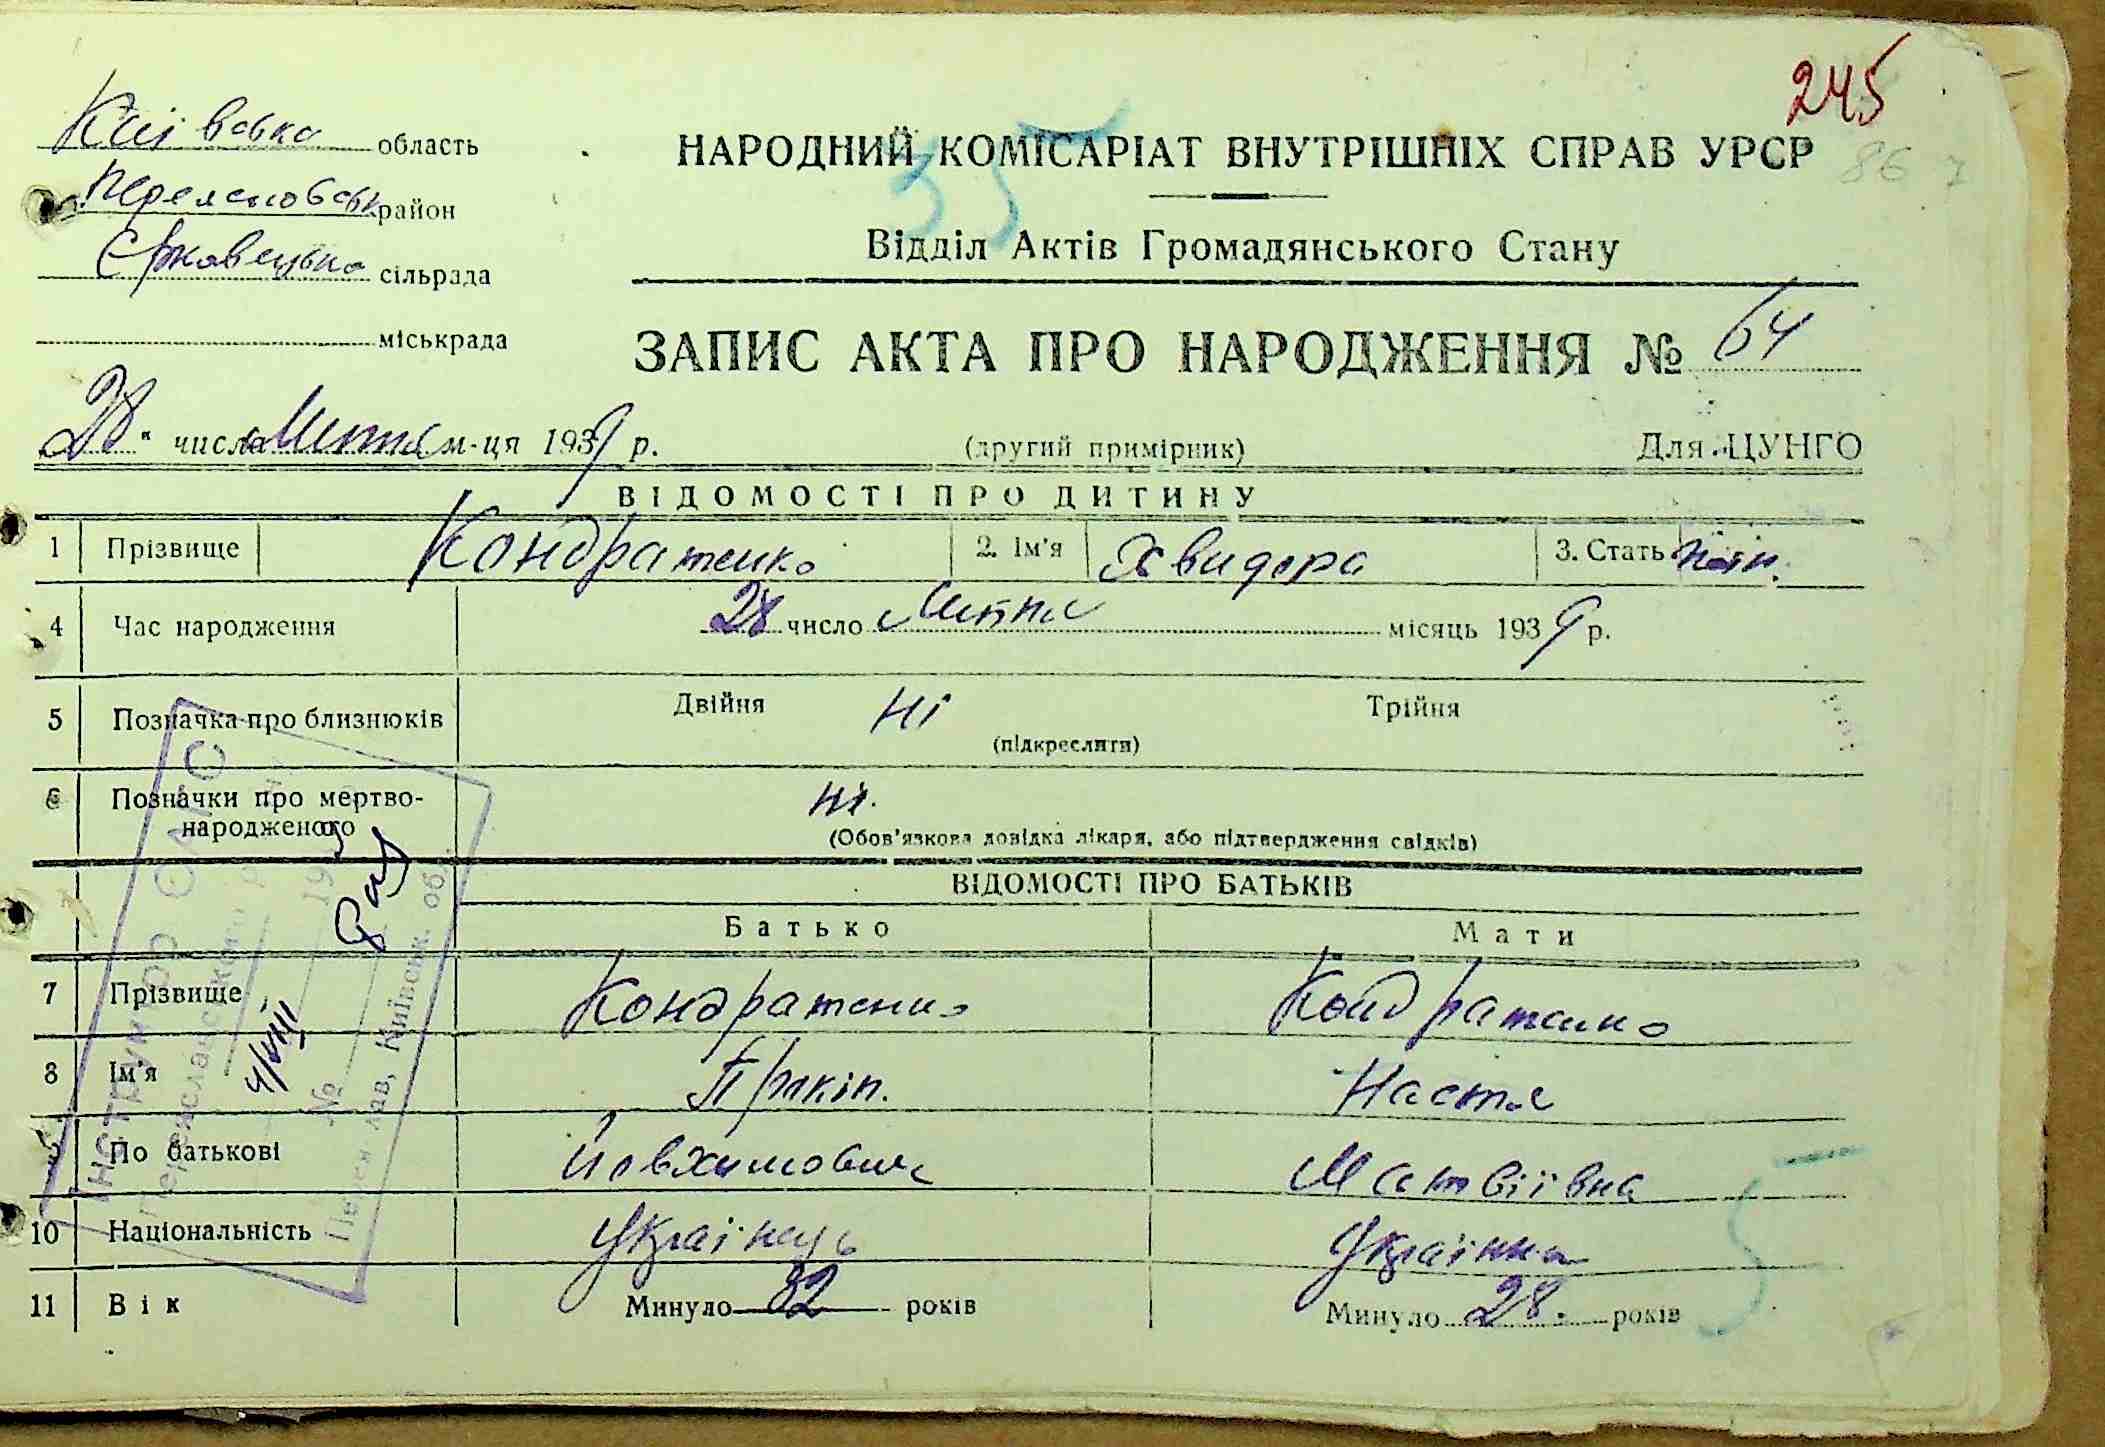 245
Київська область
НАРОДНИЙ КОМІСАРІАТ ВНУТРІШНІХ СПРАВ УРСР
35
86 7
район
Відділ Актів Громадянського Стану
Єрковецька сільрада
міськрада
ЗАПИС АКТА ПРО НАРОДЖЕННЯ № 64
28 " числа Липня м-ця 1939 р. (другий примірник) Для ЦУНГО
ВІДОМОСТІ ПРО ДИТИНУ
1 Прізвище Кондратенко 2. Ім'я Хвидора 3. Стать
4 Час народження 28 число Липня місяць 1939 р.
5 Позначка про близнюків Двійня ні Трійня
(підкреслити)
6 Позначки про мертво-
народженого ні.
(Обов'язкова довідка лікаря, або підтвердження свідків)
ВІДОМОСТІ ПРО БАТЬКІВ
Батько Мати
7 Прізвище Кондратенко Кондратенко
8 Ім'я Пракіп. Настя
9 По батькові Йовхимович Матвіївна
10 Національність Українець Українка
11 Вік Минуло 32 років Минуло 28. років
Інструктор ОАГС
Переяславського р
4/VIII 193
№
Переяслав, Київськ. обл.
5